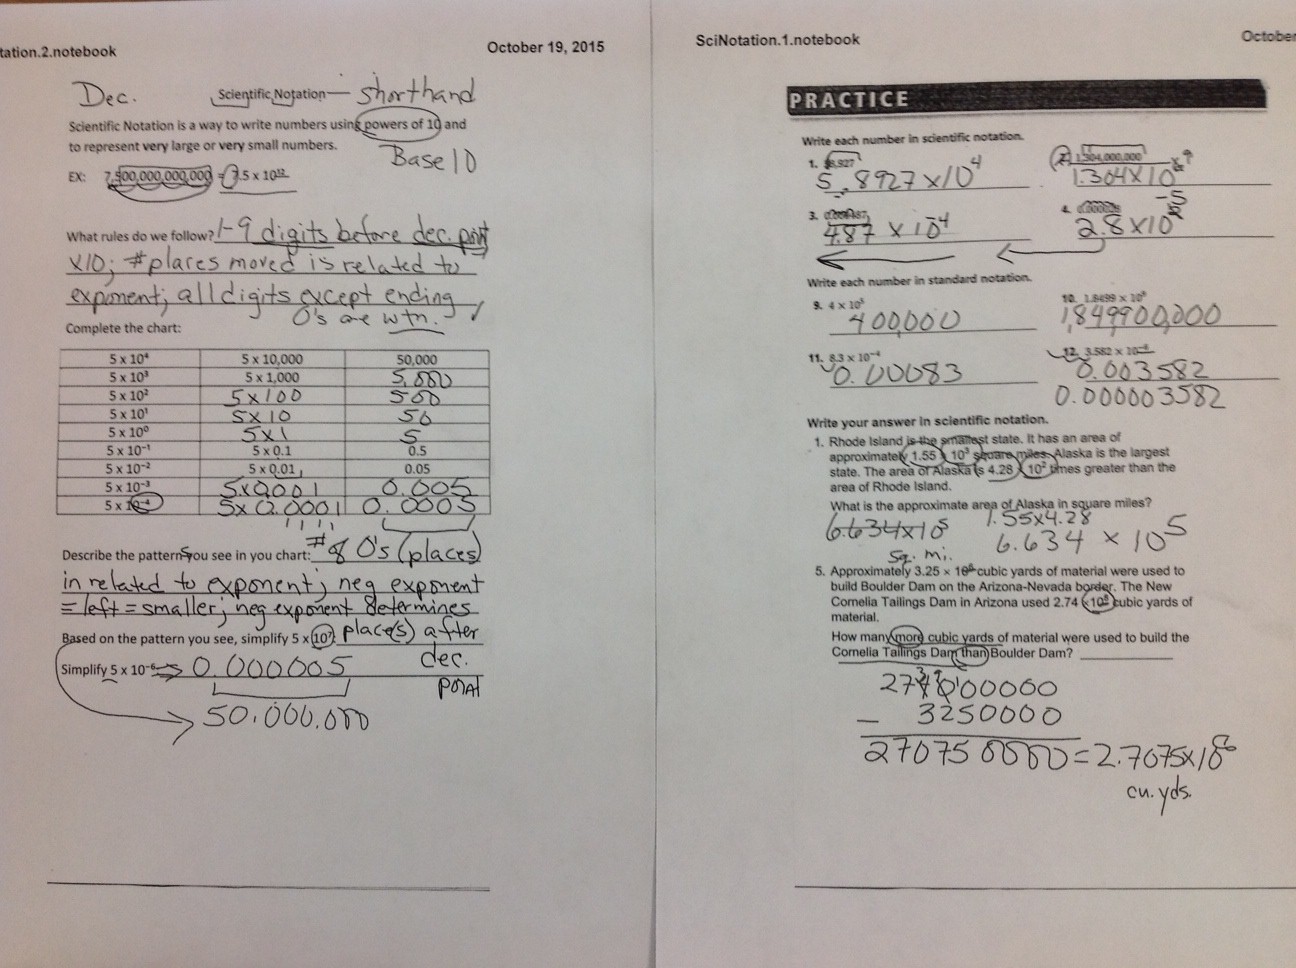 tation.2.notebook
October 19, 2015
Dec. Scientific Notation — shorthand
Scientific Notation is a way to write numbers using powers of 10 and
to represent very large or very small numbers.
Base 10
EX: 7,500,000,000,000 = 7.5 x 10¹²
What rules do we follow? 1-9 digits before dec. point
x10; # places moved is related to
exponent; all digits except ending
0's are wtn.
Complete the chart:
5 x 10⁴ 5 x 10,000 50,000
5 x 10³ 5 x 1,000 5,000
5 x 10² 5 x 100 500
5 x 10¹ 5 x 10 50
5 x 10⁰ 5 x 1 5
5 x 10⁻¹ 5 x 0.1 0.5
5 x 10⁻² 5 x 0.01 0.05
5 x 10⁻³ 5 x 0.001 0.005
5 x 10⁻⁴ 5 x 0.0001 0.0005
Describe the patterns you see in you chart: # of 0's (places)
in related to exponent; neg exponent
= left = smaller; neg exponent determines
Based on the pattern you see, simplify 5 x 10⁷: place(s) after
Simplify 5 x 10⁻⁶ → 0.000005 dec.
point
50,000,000
SciNotation.1.notebook
October
PRACTICE
Write each number in scientific notation.
1. 58,927
2. 1,304,000,000
5.8927 x 10⁴
1.304 x 10⁹
3. 0.000487
4.
4.87 x 10⁻⁴
2.8 x 10⁻⁵
Write each number in standard notation.
9. 4 x 10⁵
10. 1.8499 x 10⁹
400,000
1,849,900,000
11. 8.3 x 10⁻⁴
12. 3.582 x 10⁻⁶
0.00083
0.003582
0.000003582
Write your answer in scientific notation.
1. Rhode Island is the smallest state. It has an area of
approximately 1.55 x 10³ square miles. Alaska is the largest
state. The area of Alaska is 4.28 x 10² times greater than the
area of Rhode Island.
What is the approximate area of Alaska in square miles?
6.634 x 10⁵ 1.55 x 4.28
sq. mi. 6.634 x 10⁵
5. Approximately 3.25 × 10⁶ cubic yards of material were used to
build Boulder Dam on the Arizona-Nevada border. The New
Cornelia Tailings Dam in Arizona used 2.74 x 10⁸ cubic yards of
material.
How many more cubic yards of material were used to build the
Cornelia Tailings Dam than Boulder Dam?
274000000
- 3250000
270750000 = 2.7075 x 10⁸
cu. yds.